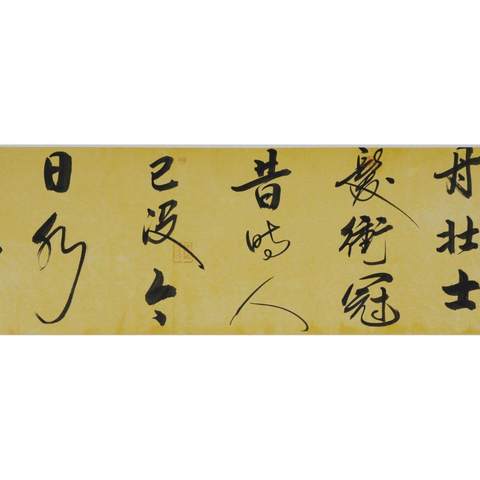 丹壮士
髮衝冠
昔時人
已没今
日水